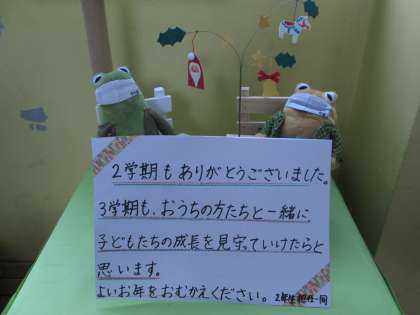 2学期もありがとうございました。
3学期も、おうちの方たちと一緒に、
子どもたちの成長を見守っていけたらと
思います。
よいお年をおむかえください。
2年生担任一同